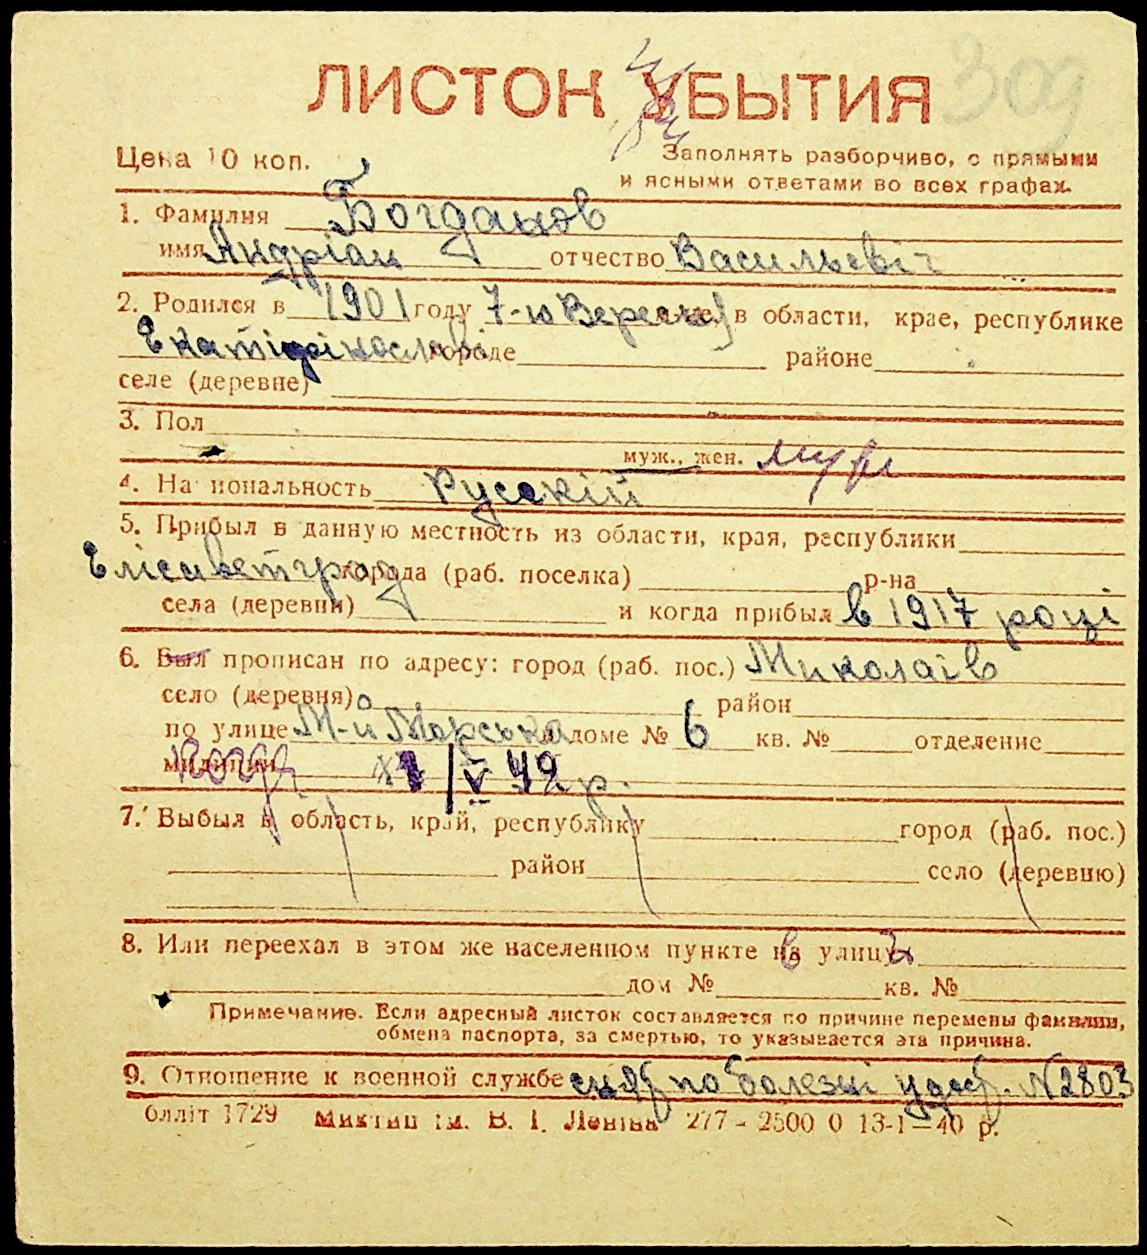 ЛИСТОК УБЫТИЯ 309
Цена 10 коп.
Заполнять разборчиво, с прямыми
и ясными ответами во всех графах.
1. Фамилия Богданов
имя Андріан отчество Васильевіч
2. Родился в 1901 году 7-го Вересня в области, крае, республике
городе районе
селе (деревне)
3. Пол
муж., жен. муж
4. Национальность Русскій
5. Прибыл в данную местность из области, края, республики
Елісаветград города (раб. поселка) р-на
села (деревни) и когда прибыл в 1917 році
6. Был прописан по адресу: город (раб. пос.) Миколаїв
село (деревня) район
по улице М-й Морська в доме № 6 кв. № отделение
милиции V 42 р.
7. Выбыл в область, край, республику город (раб. пос.)
район село (деревню)
8. Или переехал в этом же населенном пункте на улицу
дом № кв. №
Примечание. Если адресный листок составляется по причине перемены фамилии,
обмена паспорта, за смертью, то указывается эта причина.
9. Отношение к военной службе снят по болезні удост. N2803
блліт 1729 Миктип ім. В. І. Леніна 277 - 2500 0 13-1-40 р.